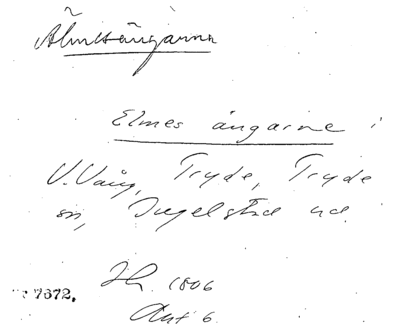 Älmesängarna
Elmes ängarne i
V. Vång, Tryde, Tryde
sn, Ingelstad hd.
Jh. 1806
Akt 6.
7672.